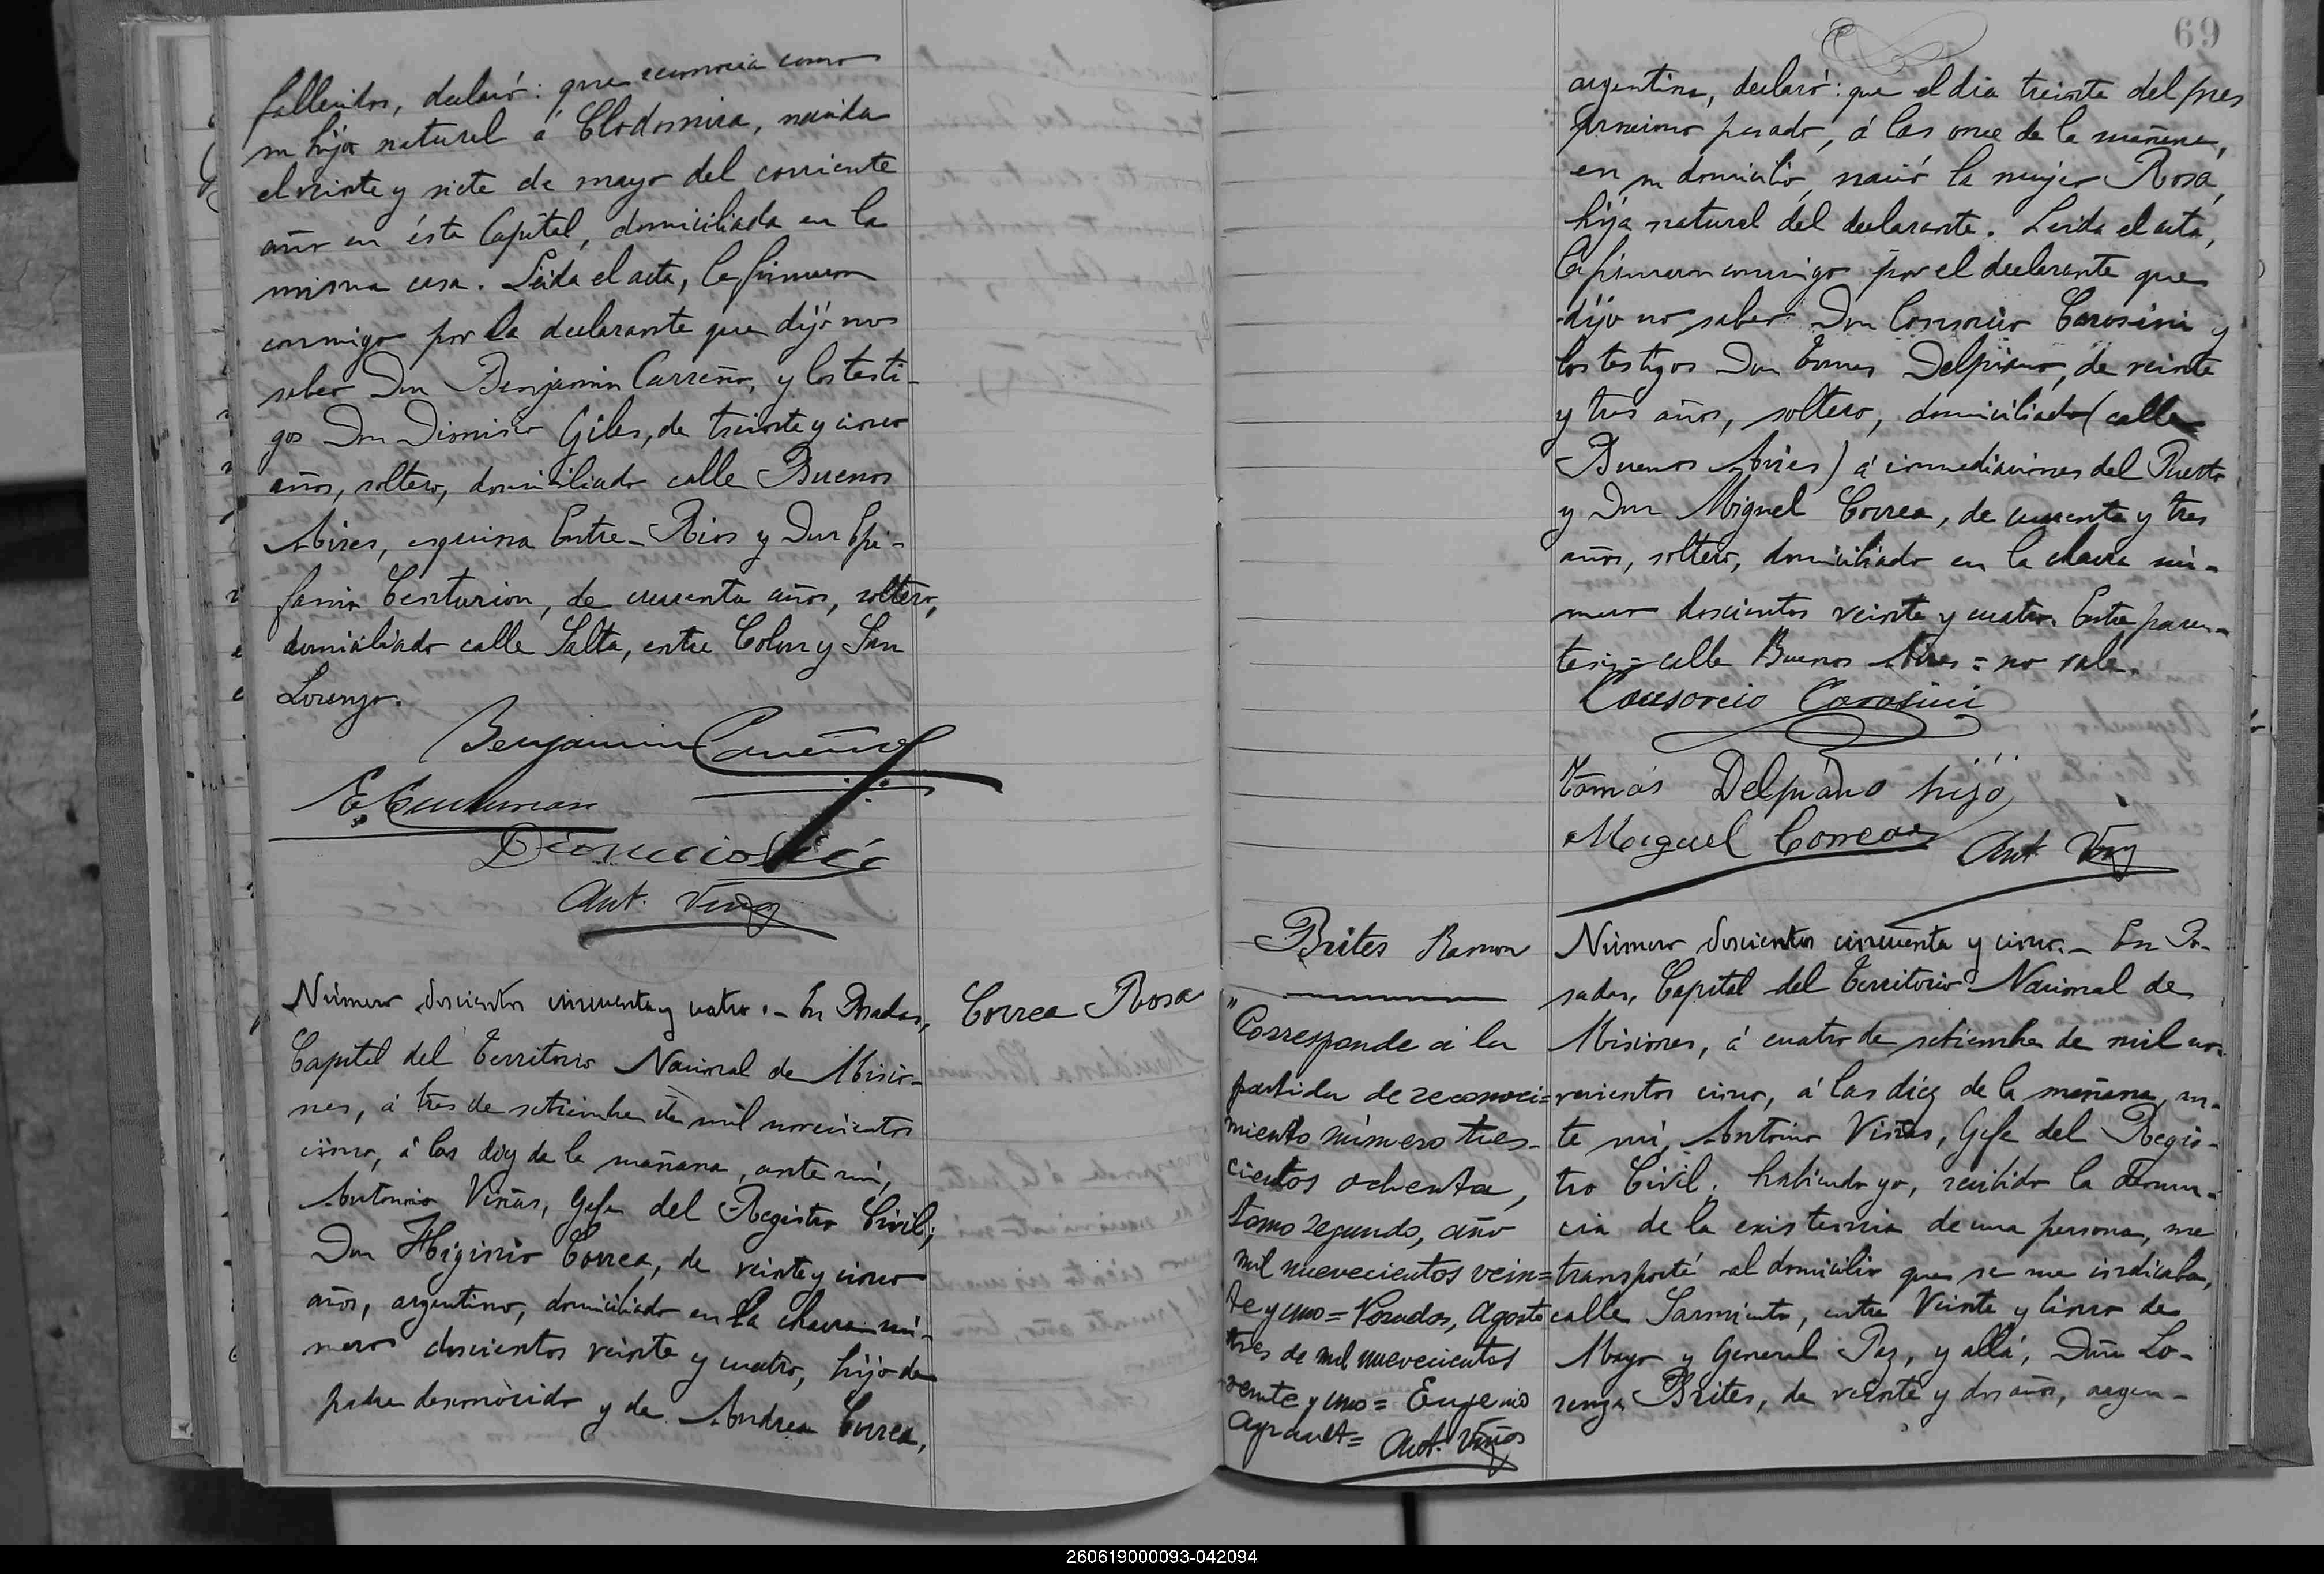 fallecidos, declaró: que reconocia como
su hija natural á Clodomira, nacida
el veinte y siete de mayo del corriente
año en ésta Capital, domiciliada en la
misma casa. Leida el acta, la firmaron
conmigo por la declarante que dijo no
saber Don Benjamin Carreño, y los testi-
gos Don Dionisio Giles, de treinta y cinco
años, soltero, domiciliado calle Buenos
Aires, esquina Entre-Rios y Don Epi-
fanio Centurion, de cuarenta años, soltero,
domiciliado calle Salta, entre Colon y San
Lorenzo.
Benjamin Carreño
E. Centurion
Dionicio
Ant. Viñas
Número doscientos cincuenta y cuatro.- En Posadas,
Correa Rosa
Capital del Territorio Nacional de Misio-
nes, á tres de setiembre de mil novecientos
cinco, á las diez de la mañana, ante mi,
Antonio Viñas, Gefe del Registro Civil;
Don Higinio Correa, de veinte y cinco
años, argentino, domiciliado en la chacra nú-
mero doscientos veinte y cuatro, hijo de
padre desconocido y de Andrea Correa,
69
argentina, declaró: que el dia treinta del mes
proximo pasado, á las once de la mañana,
en su domicilio, nació la mujer Rosa,
hija natural del declarante. Leida el acta,
la firmaron conmigo por el declarante que
dijo no saber Don Consorcio Carosini y
los testigos Don Tomas Delpiano, de veinte
y tres años, soltero, domiciliado (calle
Buenos Aires) á inmediaciones del Puerto
y Don Miguel Correa, de cuarenta y tres
años, soltero, domiciliado en la chacra nú-
mero doscientos veinte y cuatro. Entre paren-
tesis = calle Buenos Aires = no vale.
Consorcio Carosini
Tomás Delpiano hijo
Miguel Correa
Ant. Viñas
Brites Ramon
"Corresponde á la
partida de reconoci=
miento número tres-
cientos ochenta,
tomo segundo, año
mil nuevecientos vein=
te y uno = Posadas, Agosto
tres de mil nuevecientos
veinte y uno = Eugenio
Ayrault=
Ant. Viñas
Número doscientos cincuenta y cinco.- En Po-
sadas, Capital del Territorio Nacional de
Misiones, á cuatro de setiembre de mil no-
vecientos cinco, á las diez de la mañana, an-
te mi, Antonio Viñas, Gefe del Regis-
tro Civil; habiendo yo, recibido la denun-
cia de la existencia de una persona, me
transporté al domicilio que se me indicaba,
calle Sarmiento, entre Veinte y Cinco de
Mayo y General Paz, y allá, Doña Lo-
renza Brites, de veinte y dos años, argen-
260619000093-042094